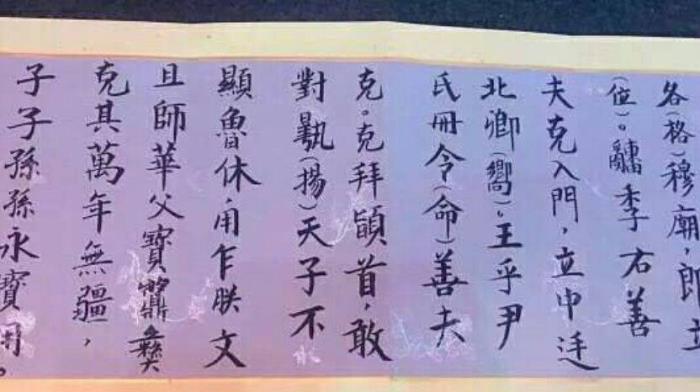 各(格)穆廟,即立
(位)。季右善
夫克入門,立中廷
北卿(嚮)。王乎尹
氏冊令(命)善夫
克。克拜䭫首,敢
對(揚)天子不
顯魯休,用乍朕文
且師華父寶䵼彝
克其萬年無疆,
子子孫孫永寶用。